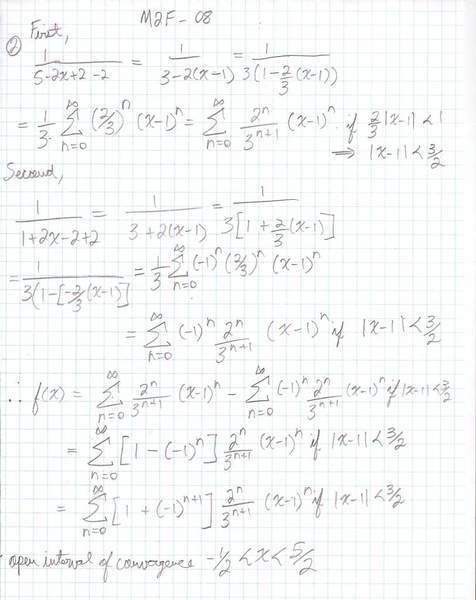 M2F-08
② First,
1/(5-2x+2-2) = 1/(3-2(x-1)) = 1/(3(1-2/3(x-1)))
= 1/3 ∞∑n=0 (2/3)^n (x-1)^n = ∞∑n=0 2^n/3^(n+1) (x-1)^n if 2/3|x-1|<1
⇒ |x-1|<3/2
Second,
1/(1+2x-2+2) = 1/(3+2(x-1)) = 1/(3[1+2/3(x-1)])
= 1/(3(1-[-2/3(x-1)]) = 1/3 ∞∑n=0 (-1)^n (2/3)^n (x-1)^n
= ∞∑n=0 (-1)^n 2^n/3^(n+1) (x-1)^n if |x-1|<3/2
∴ f(x) = ∞∑n=0 2^n/3^(n+1) (x-1)^n - ∞∑n=0 (-1)^n 2^n/3^(n+1) (x-1)^n if |x-1|<3/2
= ∞∑n=0 [1-(-1)^n] 2^n/3^(n+1) (x-1)^n if |x-1|<3/2
= ∞∑n=0 [1+(-1)^(n+1)] 2^n/3^(n+1) (x-1)^n if |x-1|<3/2
open interval of convergence -1/2<x<5/2